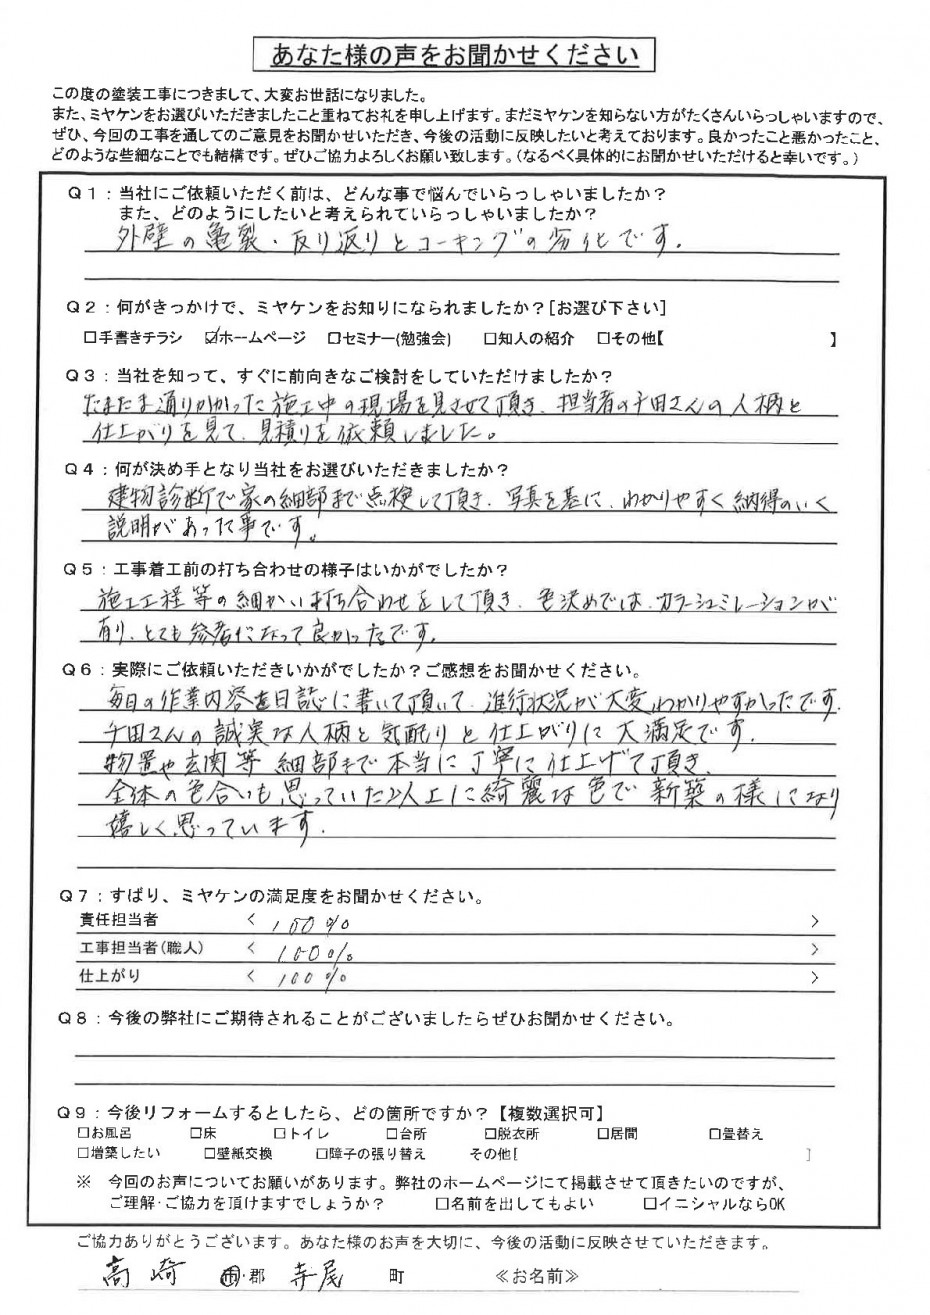 あなた様の声をお聞かせください
この度の塗装工事につきまして、大変お世話になりました。
また、ミヤケンをお選びいただきましたこと重ねてお礼を申し上げます。まだミヤケンを知らない方がたくさんいらっしゃいますので、
ぜひ、今回の工事を通してのご意見をお聞かせいただき、今後の活動に反映したいと考えております。良かったこと悪かったこと、
どのような些細なことでも結構です。ぜひご協力よろしくお願い致します。（なるべく具体的にお聞かせいただけると幸いです。）
Q1：当社にご依頼いただく前は、どんな事で悩んでいらっしゃいましたか？
また、どのようにしたいと考えられていらっしゃいましたか？
外壁の亀裂・反り返りとコーキングの劣化です。
Q2：何がきっかけで、ミヤケンをお知りになられましたか？[お選び下さい]
□手書きチラシ ☑ホームページ □セミナー(勉強会) □知人の紹介 □その他【 】
Q3：当社を知って、すぐに前向きなご検討をしていただけましたか？
たまたま通りかかった施工中の現場を見させて頂き、担当者の千田さんの人柄と
仕上がりを見て、見積りを依頼しました。
Q4：何が決め手となり当社をお選びいただきましたか？
建物診断で家の細部まで点検して頂き、写真を基に、わかりやすく納得のいく
説明があった事です。
Q5：工事着工前の打ち合わせの様子はいかがでしたか？
施工工程等の細かい打ち合わせをして頂き、色決めでは、カラーシュミレーションが
有り、とても参考になって良かったです。
Q6：実際にご依頼いただきいかがでしたか？ご感想をお聞かせください。
毎日の作業内容を日誌に書いて頂いて、進行状況が大変わかりやすかったです。
千田さんの誠実な人柄と気配りと仕上がりに大満足です。
物置や玄関等細部まで本当に丁寧に仕上げて頂き、
全体の色合いも思っていた以上に綺麗な色で新築の様になり
嬉しく思っています。
Q7：ずばり、ミヤケンの満足度をお聞かせください。
責任担当者 〈 100% 〉
工事担当者(職人) 〈 100% 〉
仕上がり 〈 100% 〉
Q8：今後の弊社にご期待されることがございましたらぜひお聞かせください。
Q9：今後リフォームするとしたら、どの箇所ですか？【複数選択可】
□お風呂 □床 □トイレ □台所 □脱衣所 □居間 □畳替え
□増築したい □壁紙交換 □障子の張り替え その他[ ]
※ 今回のお声についてお願いがあります。弊社のホームページにて掲載させて頂きたいのですが、
ご理解・ご協力を頂けますでしょうか？ □名前を出してもよい □イニシャルならOK
ご協力ありがとうございます。あなた様のお声を大切に、今後の活動に反映させていただきます。
高崎 市・郡 寺尾 町 ≪お名前≫